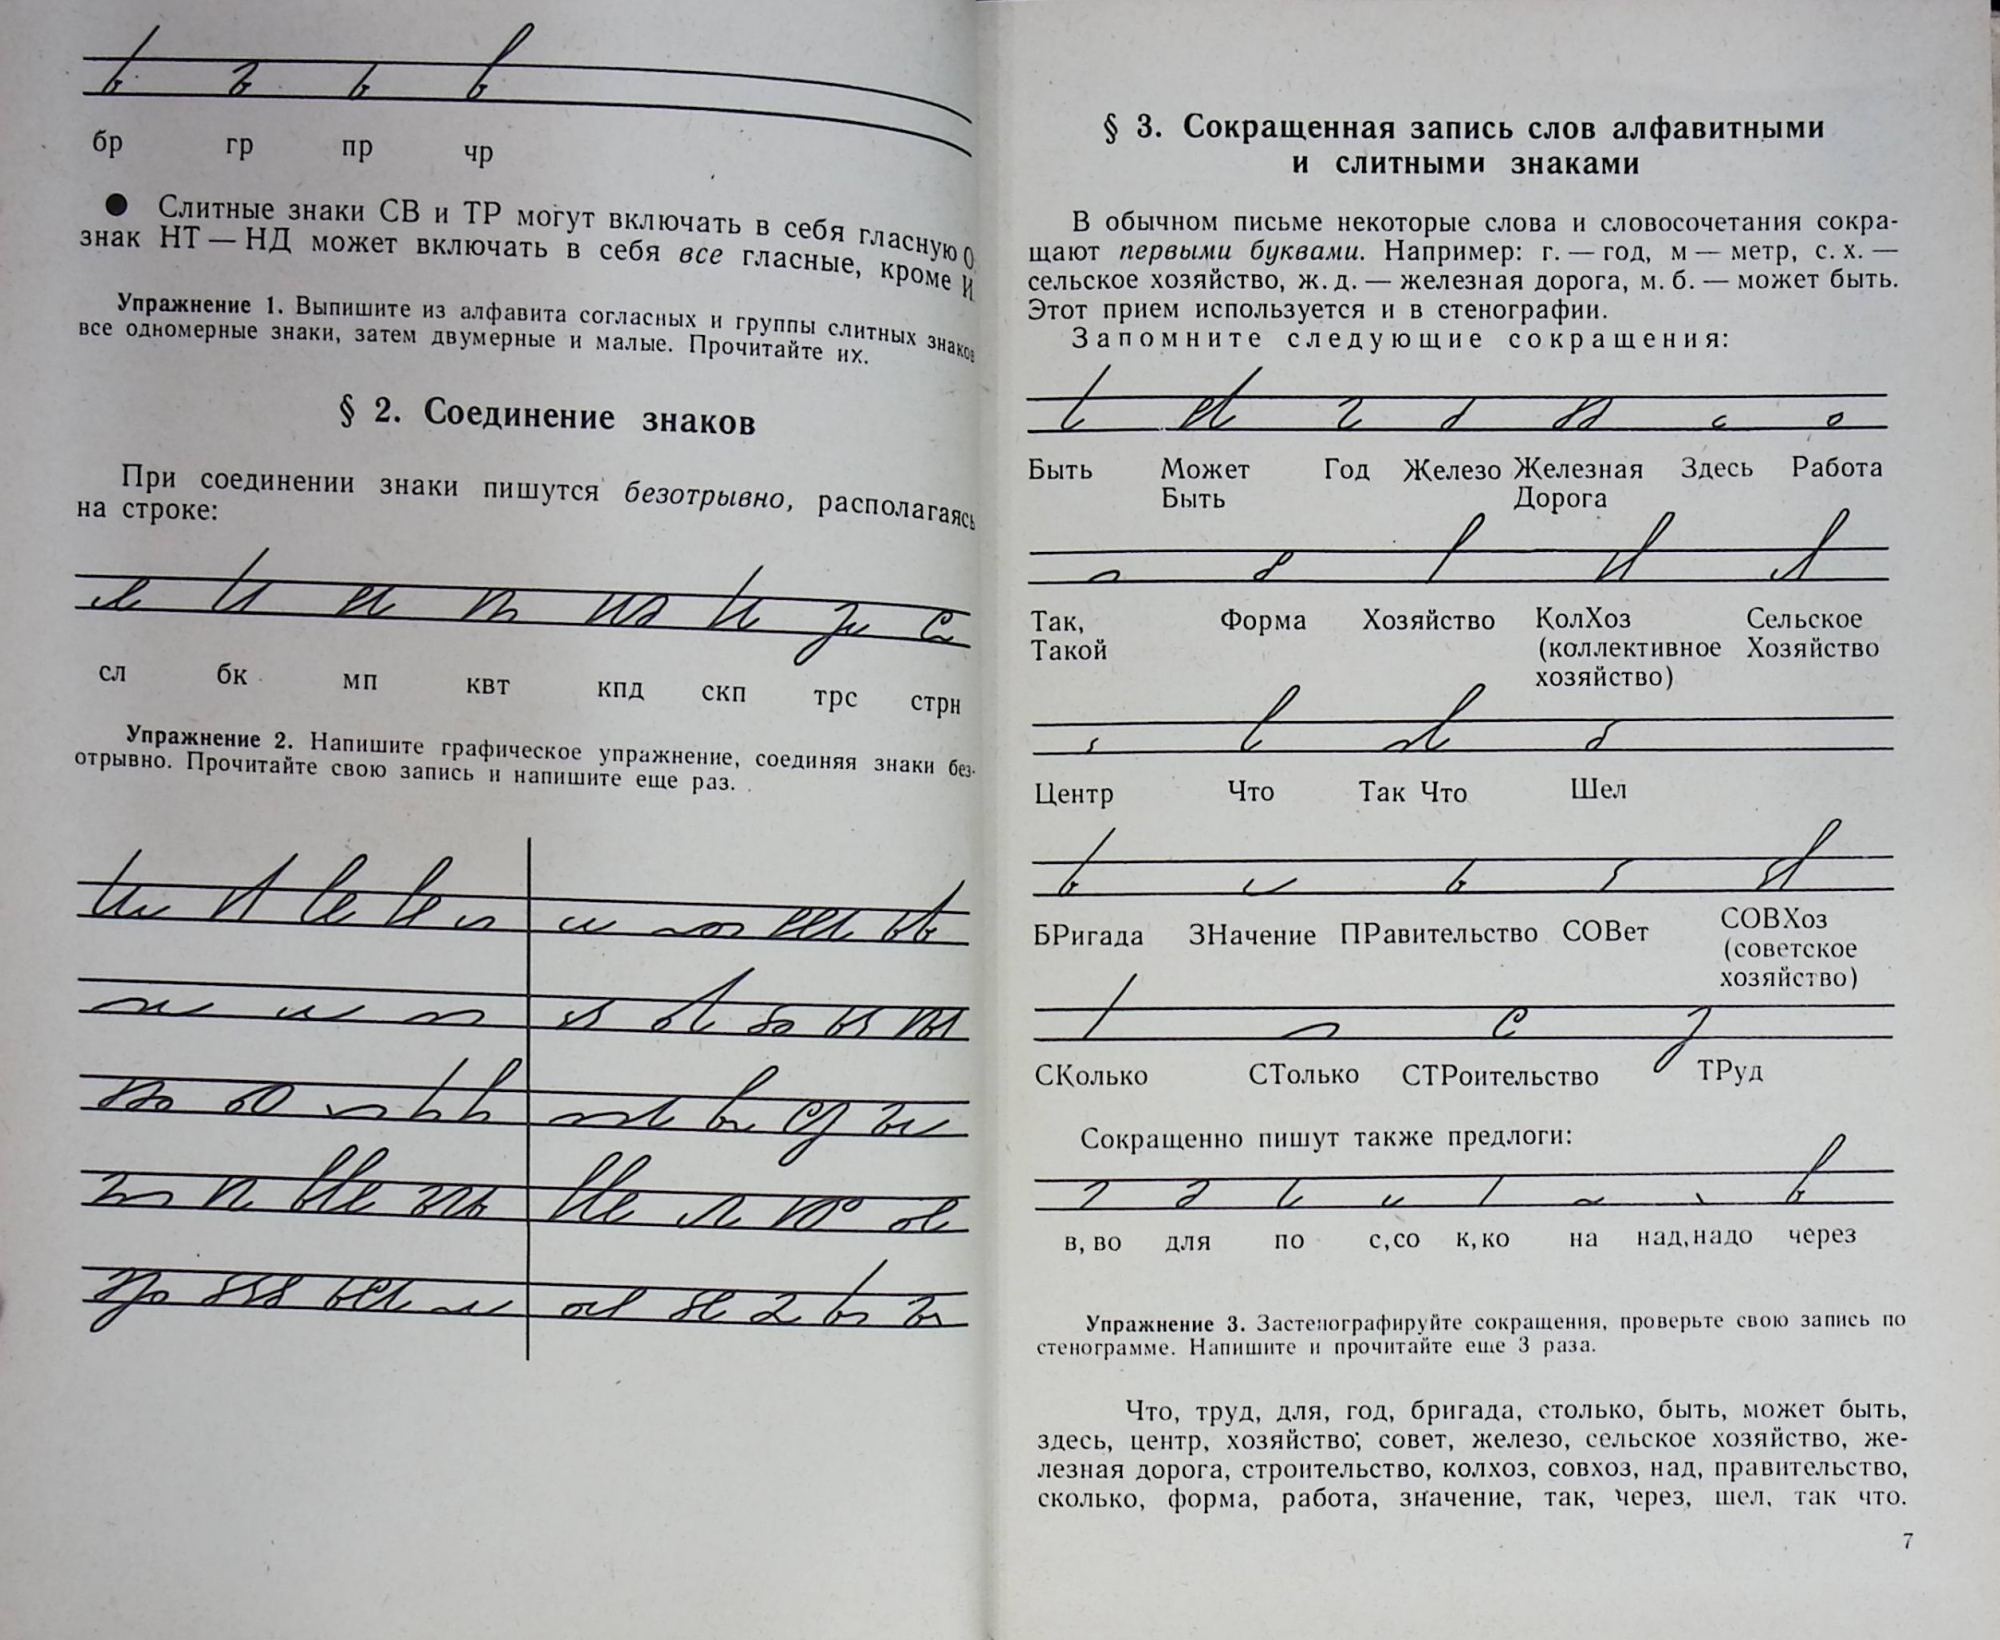 бр гр пр чр
● Слитные знаки СВ и ТР могут включать в себя гласную О,
знак НТ — НД может включать в себя все гласные, кроме И.
Упражнение 1. Выпишите из алфавита согласных и группы слитных знаков
все одномерные знаки, затем двумерные и малые. Прочитайте их.
§ 2. Соединение знаков
При соединении знаки пишутся безотрывно, располагаясь
на строке:
сл бк мп квт кпд скп трс стрн
Упражнение 2. Напишите графическое упражнение, соединяя знаки без-
отрывно. Прочитайте свою запись и напишите еще раз.
§ 3. Сокращенная запись слов алфавитными
и слитными знаками
В обычном письме некоторые слова и словосочетания сокра-
щают первыми буквами. Например: г. — год, м — метр, с. х. —
сельское хозяйство, ж. д. — железная дорога, м. б. — может быть.
Этот прием используется и в стенографии.
Запомните следующие сокращения:
Быть Может Год Железо Железная Здесь Работа
Быть Дорога
Так, Форма Хозяйство КолХоз Сельское
Такой (коллективное Хозяйство
хозяйство)
Центр Что Так Что Шел
БРигада ЗНачение ПРавительство СОВет СОВХоз
(советское
хозяйство)
СКолько СТолько СТРоительство ТРуд
Сокращенно пишут также предлоги:
в, во для по с, со к, ко на над, надо через
Упражнение 3. Застенографируйте сокращения, проверьте свою запись по
стенограмме. Напишите и прочитайте еще 3 раза.
Что, труд, для, год, бригада, столько, быть, может быть,
здесь, центр, хозяйство, совет, железо, сельское хозяйство, же-
лезная дорога, строительство, колхоз, совхоз, над, правительство,
сколько, форма, работа, значение, так, через, шел, так что.
7